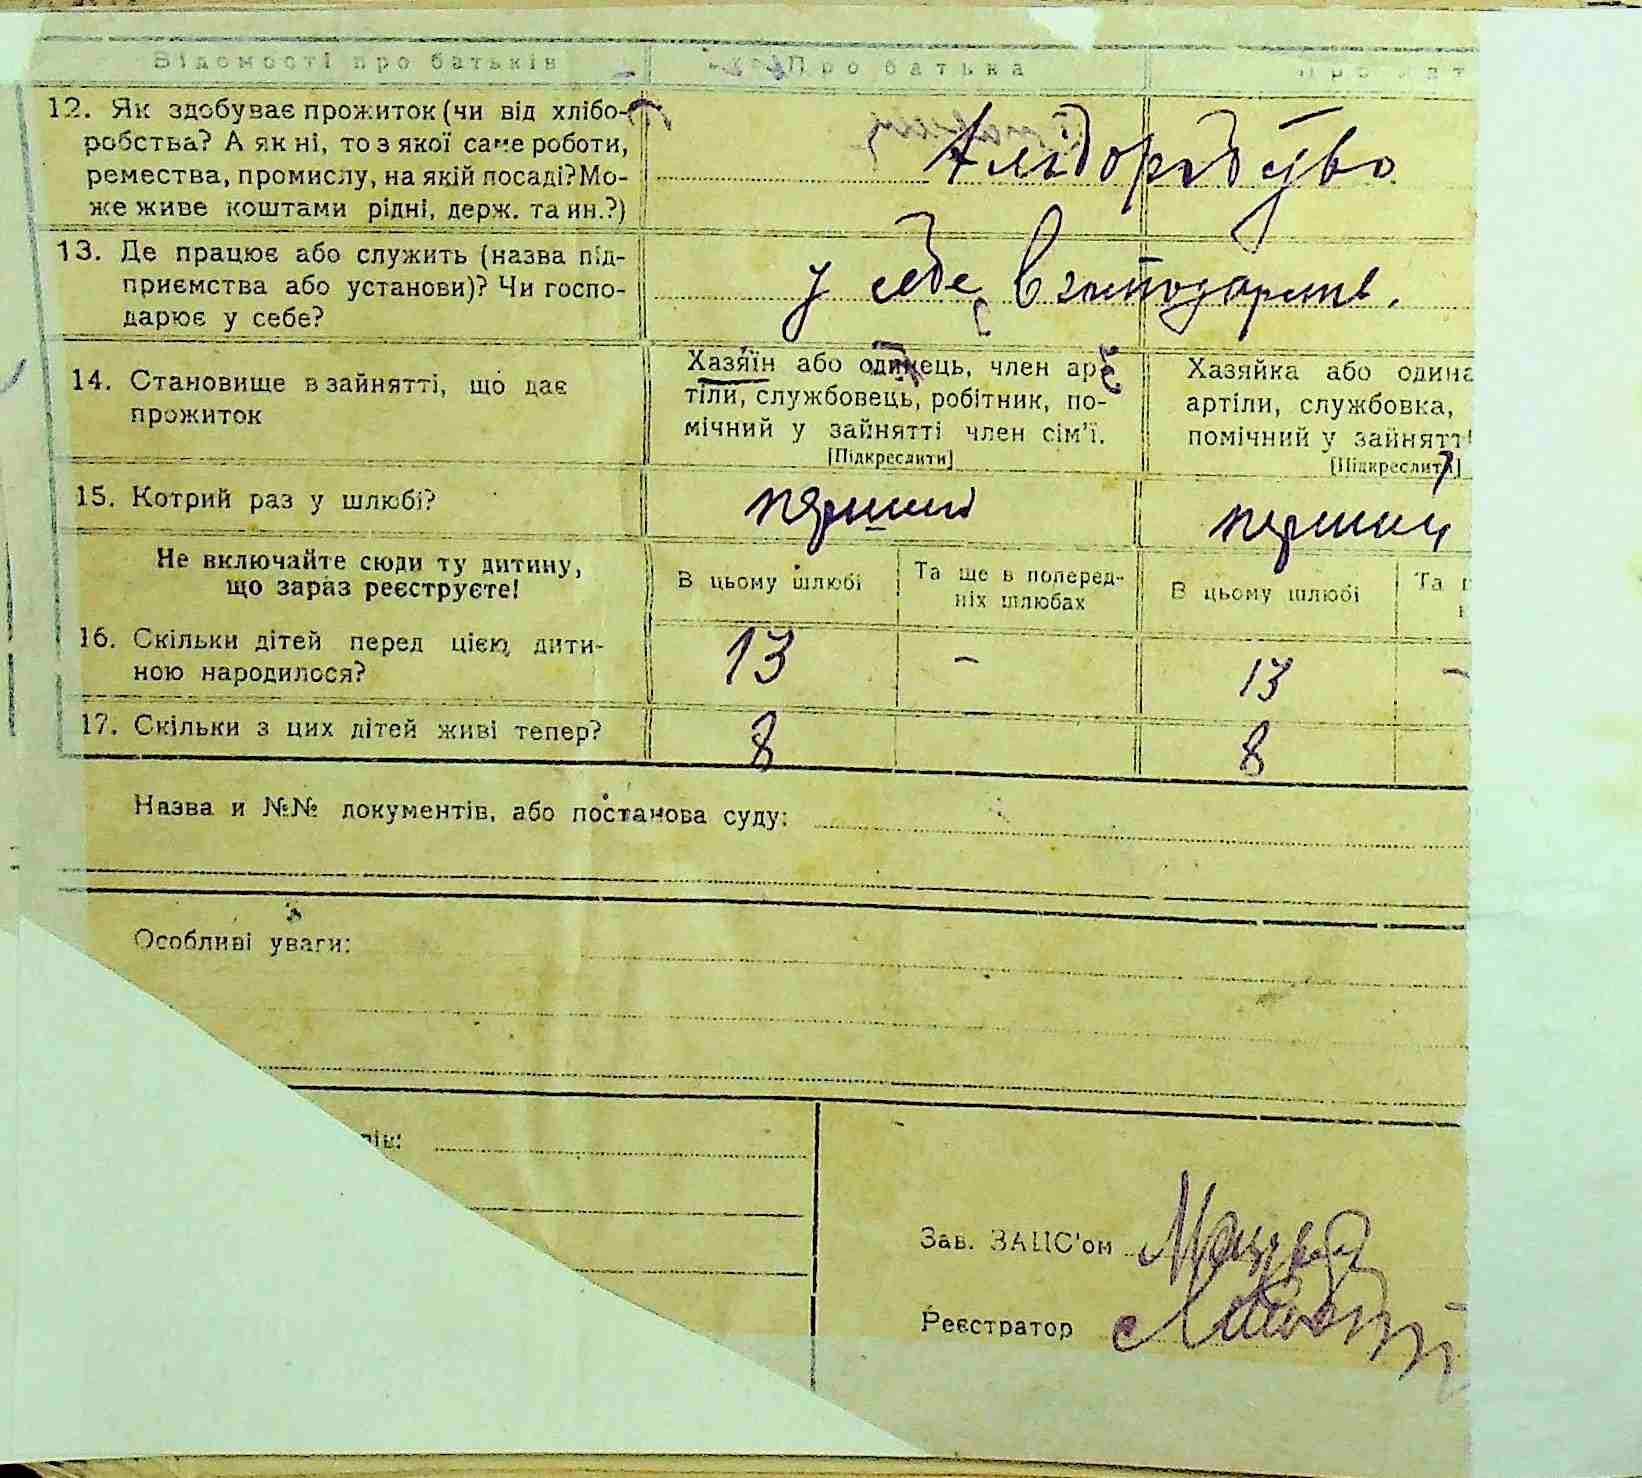 Відомості про батьків Про батька
12. Як здобуває прожиток (чи від хлібо-
робства? А як ні, то з якої саме роботи,
ремества, промислу, на якій посаді? Мо-
же живе коштами рідні, держ. та ин.?)
13. Де працює або служить (назва під-
приємства або установи)? Чи госпо-
дарює у себе?
у себе в господарстві.
14. Становище в зайнятті, що дає
прожиток
Хазяїн або одинець, член ар-
тіли, службовець, робітник, по-
мічний у зайнятті член сім'ї.
[Підкреслити]
Хазяйка або один
артіли, службовка,
помічний у зайнятті
[Підкреслити]
15. Котрий раз у шлюбі?
перший перший
Не включайте сюди ту дитину,
що зараз реєструєте!
В цьому шлюбі Та ще в поперед-
ніх шлюбах
В цьому шлюбі Та
16. Скільки дітей перед цією дити-
ною народилося?
13 - 13 -
17. Скільки з цих дітей живі тепер?
8 8
Назва и №№ документів, або постанова суду:
Особливі уваги:
Зав. ЗАЦС'ом
Реєстратор